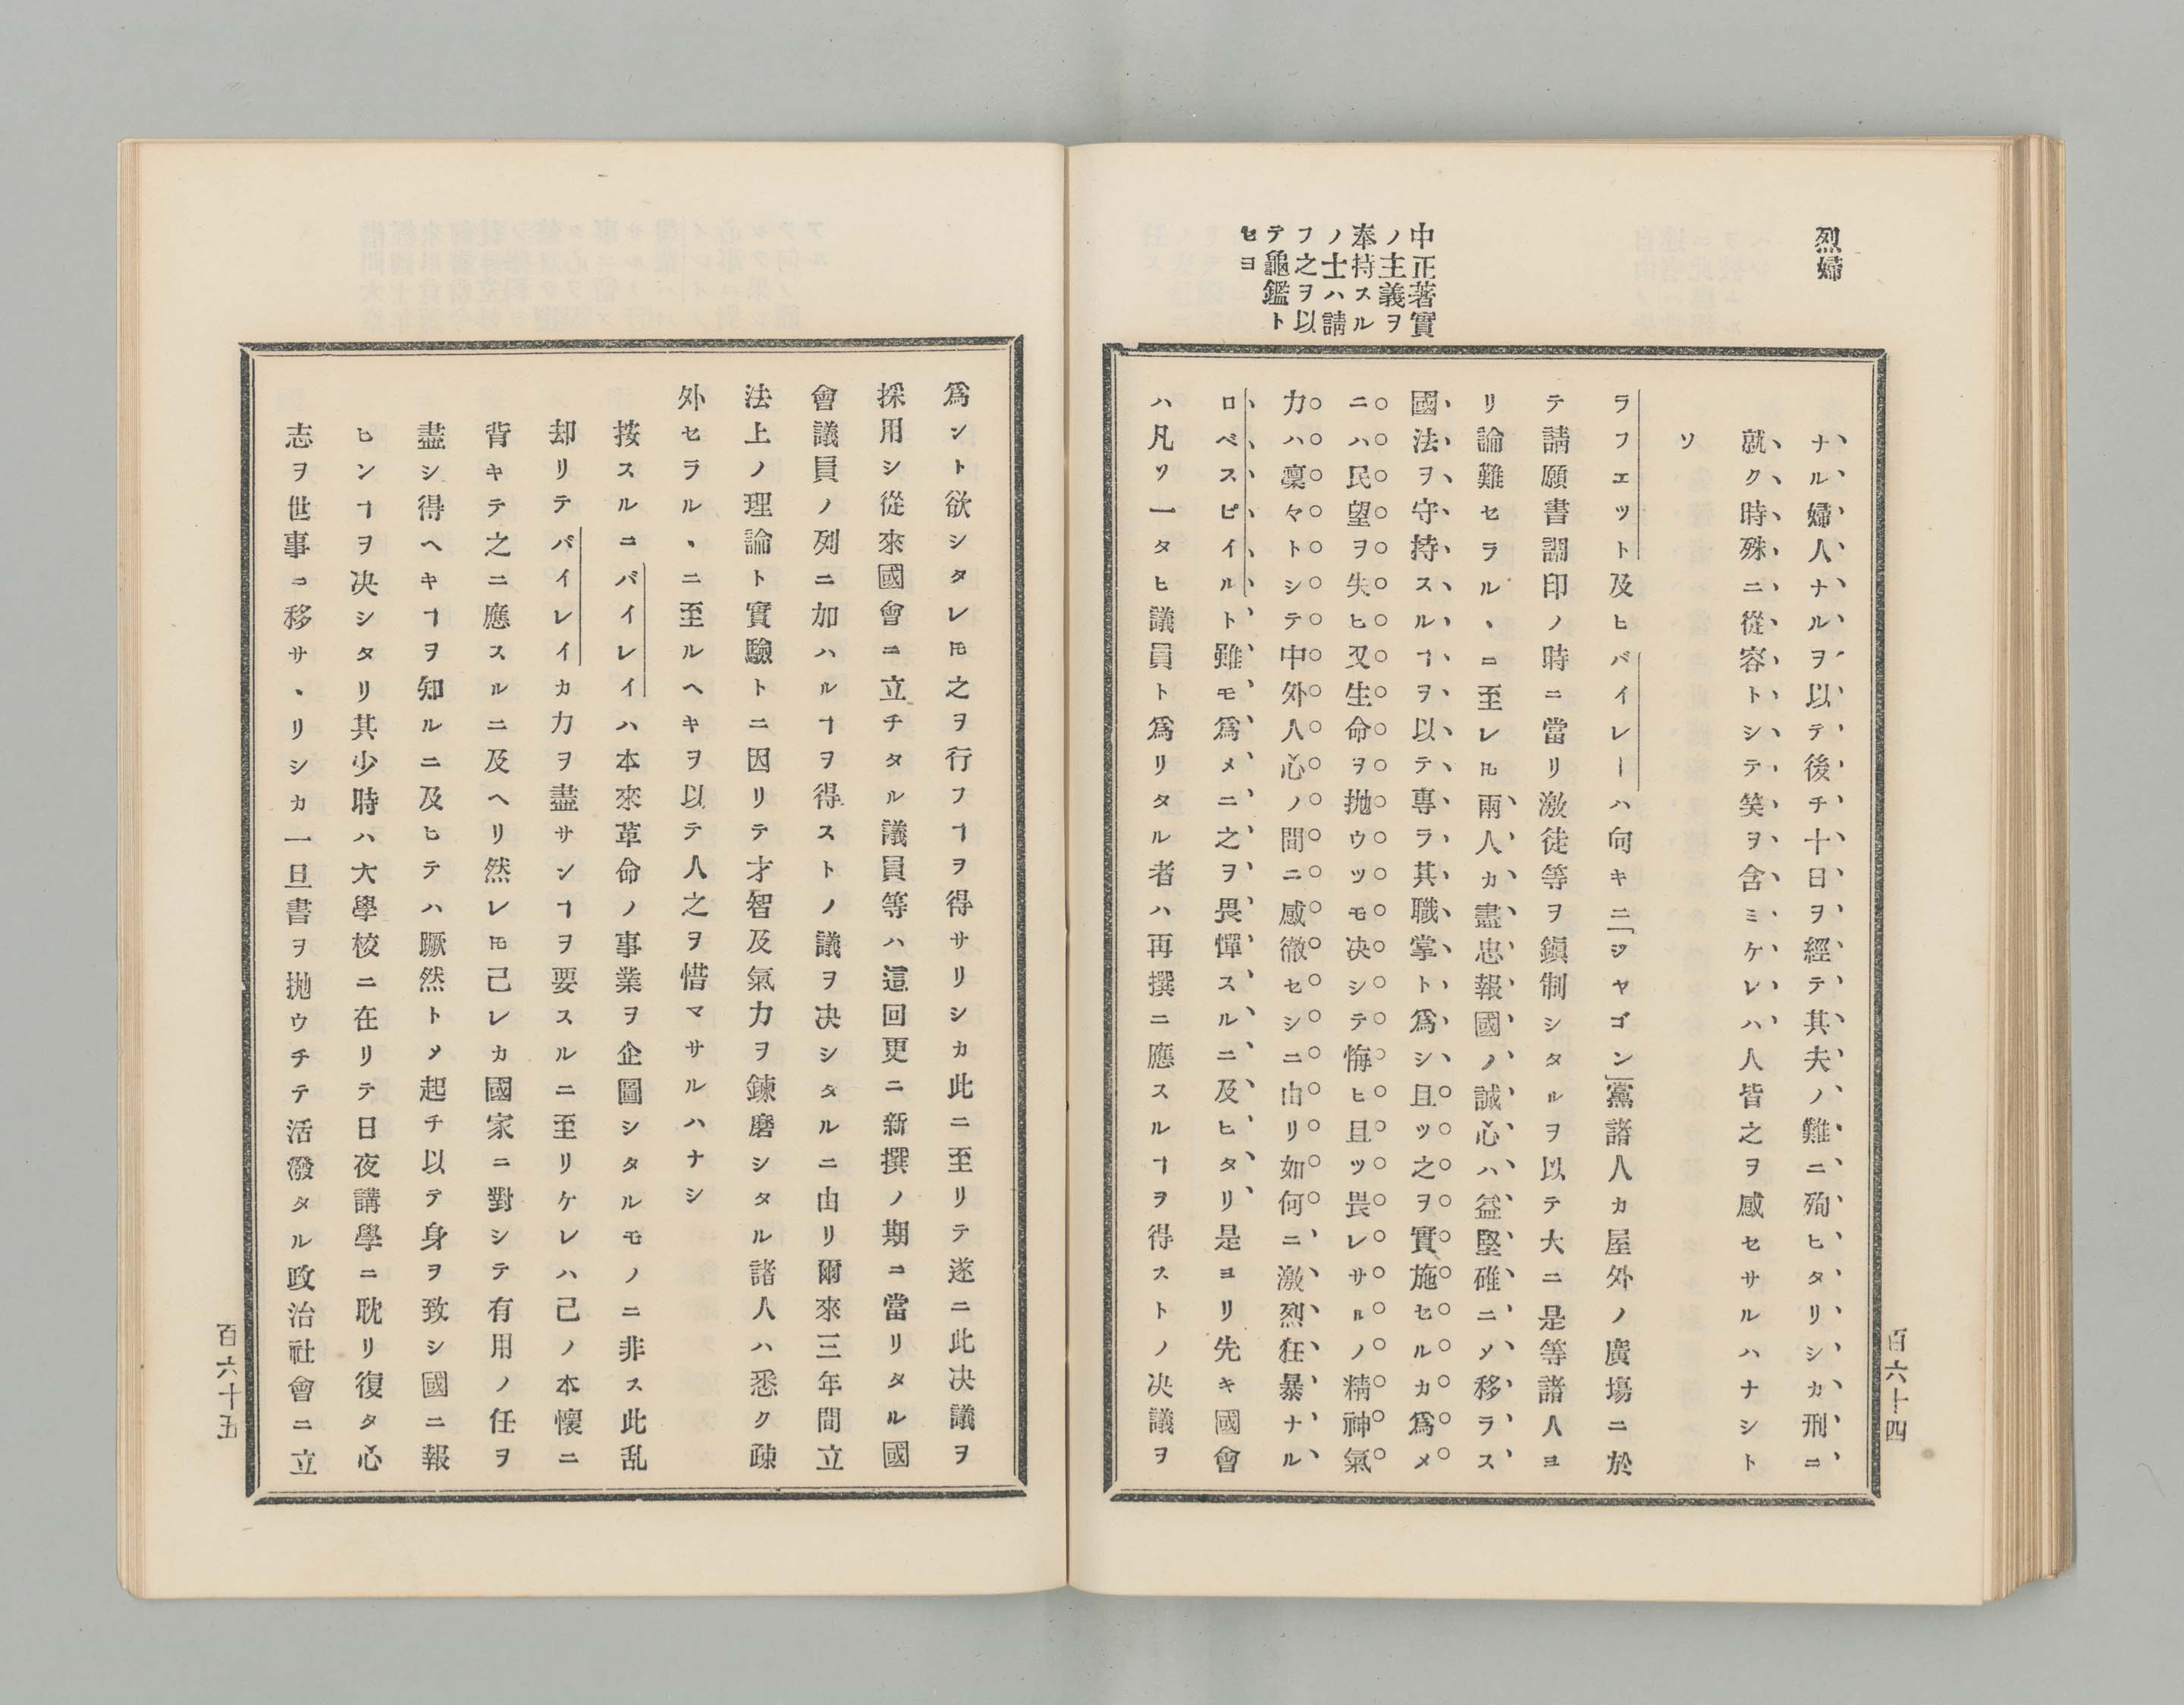 烈婦
中正著實
ノ主義ヲ
奉持スル
ノ士ハ請
フ之ヲ以
テ龜鑑ト
セヨ
ナル婦人ナルヲ以テ後チ十日ヲ經テ其夫ノ難ニ殉ヒタリシカ刑ニ
就ク時殊ニ從容トシテ笑ヲ含ミケレハ人皆之ヲ感セサルハナシト
ソ
ラフエツト及ヒバイレーハ向キニ「ジヤゴン」黨諸人カ屋外ノ廣場ニ於
テ請願書調印ノ時ニ當リ激徒等ヲ鎭制シタルヲ以テ大ニ是等諸人ヨ
リ論難セラルヽニ至レ𪜈兩人カ盡忠報國ノ誠心ハ益堅確ニメ移ラス
國法ヲ守持スルヿヲ以テ專ラ其職掌ト爲シ且ツ之ヲ實施セルカ爲メ
ニハ民望ヲ失ヒ又生命ヲ抛ウツモ决シテ悔ヒ且ツ畏レサルノ精神氣
力ハ凛々トシテ中外人心ノ間ニ感徹セシニ由リ如何ニ激烈狂暴ナル
ロベスピイルト雖モ爲メニ之ヲ畏憚スルニ及ヒタリ是ヨリ先キ國會
ハ凡ソ一タヒ議員ト爲リタル者ハ再撰ニ應スルヿヲ得ストノ决議ヲ
百六十四
爲ント欲シタレ𪜈之ヲ行フヿヲ得サリシカ此ニ至リテ遂ニ此决議ヲ
採用シ從來國會ニ立チタル議員等ハ這回更ニ新撰ノ期ニ當リタル國
會議員ノ列ニ加ハルヿヲ得ストノ議ヲ决シタルニ由リ爾來三年間立
法上ノ理論ト實驗トニ因リテ才智及氣力ヲ鍊磨シタル諸人ハ悉ク疎
外セラルヽニ至ルヘキヲ以テ人之ヲ惜マサルハナシ
按スルニバイレイハ本來革命ノ事業ヲ企圖シタルモノニ非ス此乱
却リテバイレイカ力ヲ盡サンヿヲ要スルニ至リケレハ己ノ本懷ニ
背キテ之ニ應スルニ及ヘリ然レ𪜈己レカ國家ニ對シテ有用ノ任ヲ
盡シ得ヘキヿヲ知ルニ及ヒテハ蹶然トメ起チ以テ身ヲ致シ國ニ報
ヒンヿヲ决シタリ其少時ハ大學校ニ在リテ日夜講學ニ耽リ復タ心
志ヲ世事ニ移サヽリシカ一旦書ヲ抛ウチテ活潑タル政治社會ニ立
百六十五